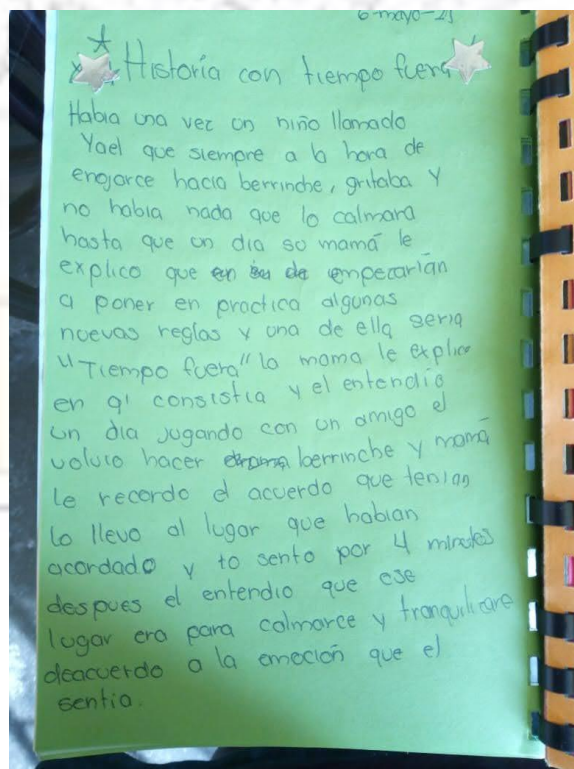 6-mayo-21
Historia con tiempo fuera
Habia una vez un niño llamado
Yael que siempre a la hora de
enojarce hacia berrinche, gritaba y
no habia nada que lo calmara
hasta que un dia su mamá le
explico que en su de empezarian
a poner en practica algunas
nuevas reglas y una de ella seria
"Tiempo fuera" la mama le explico
en q' consistia y el entendio
un dia jugando con un amigo el
volvio hacer drama berrinche y mamá
le recordo el acuerdo que tenian
lo llevo al lugar que habian
acordado y lo sento por 4 minutos
despues el entendio que ese
lugar era para calmarce y tranquilizare
deacuerdo a la emoción que el
sentia.